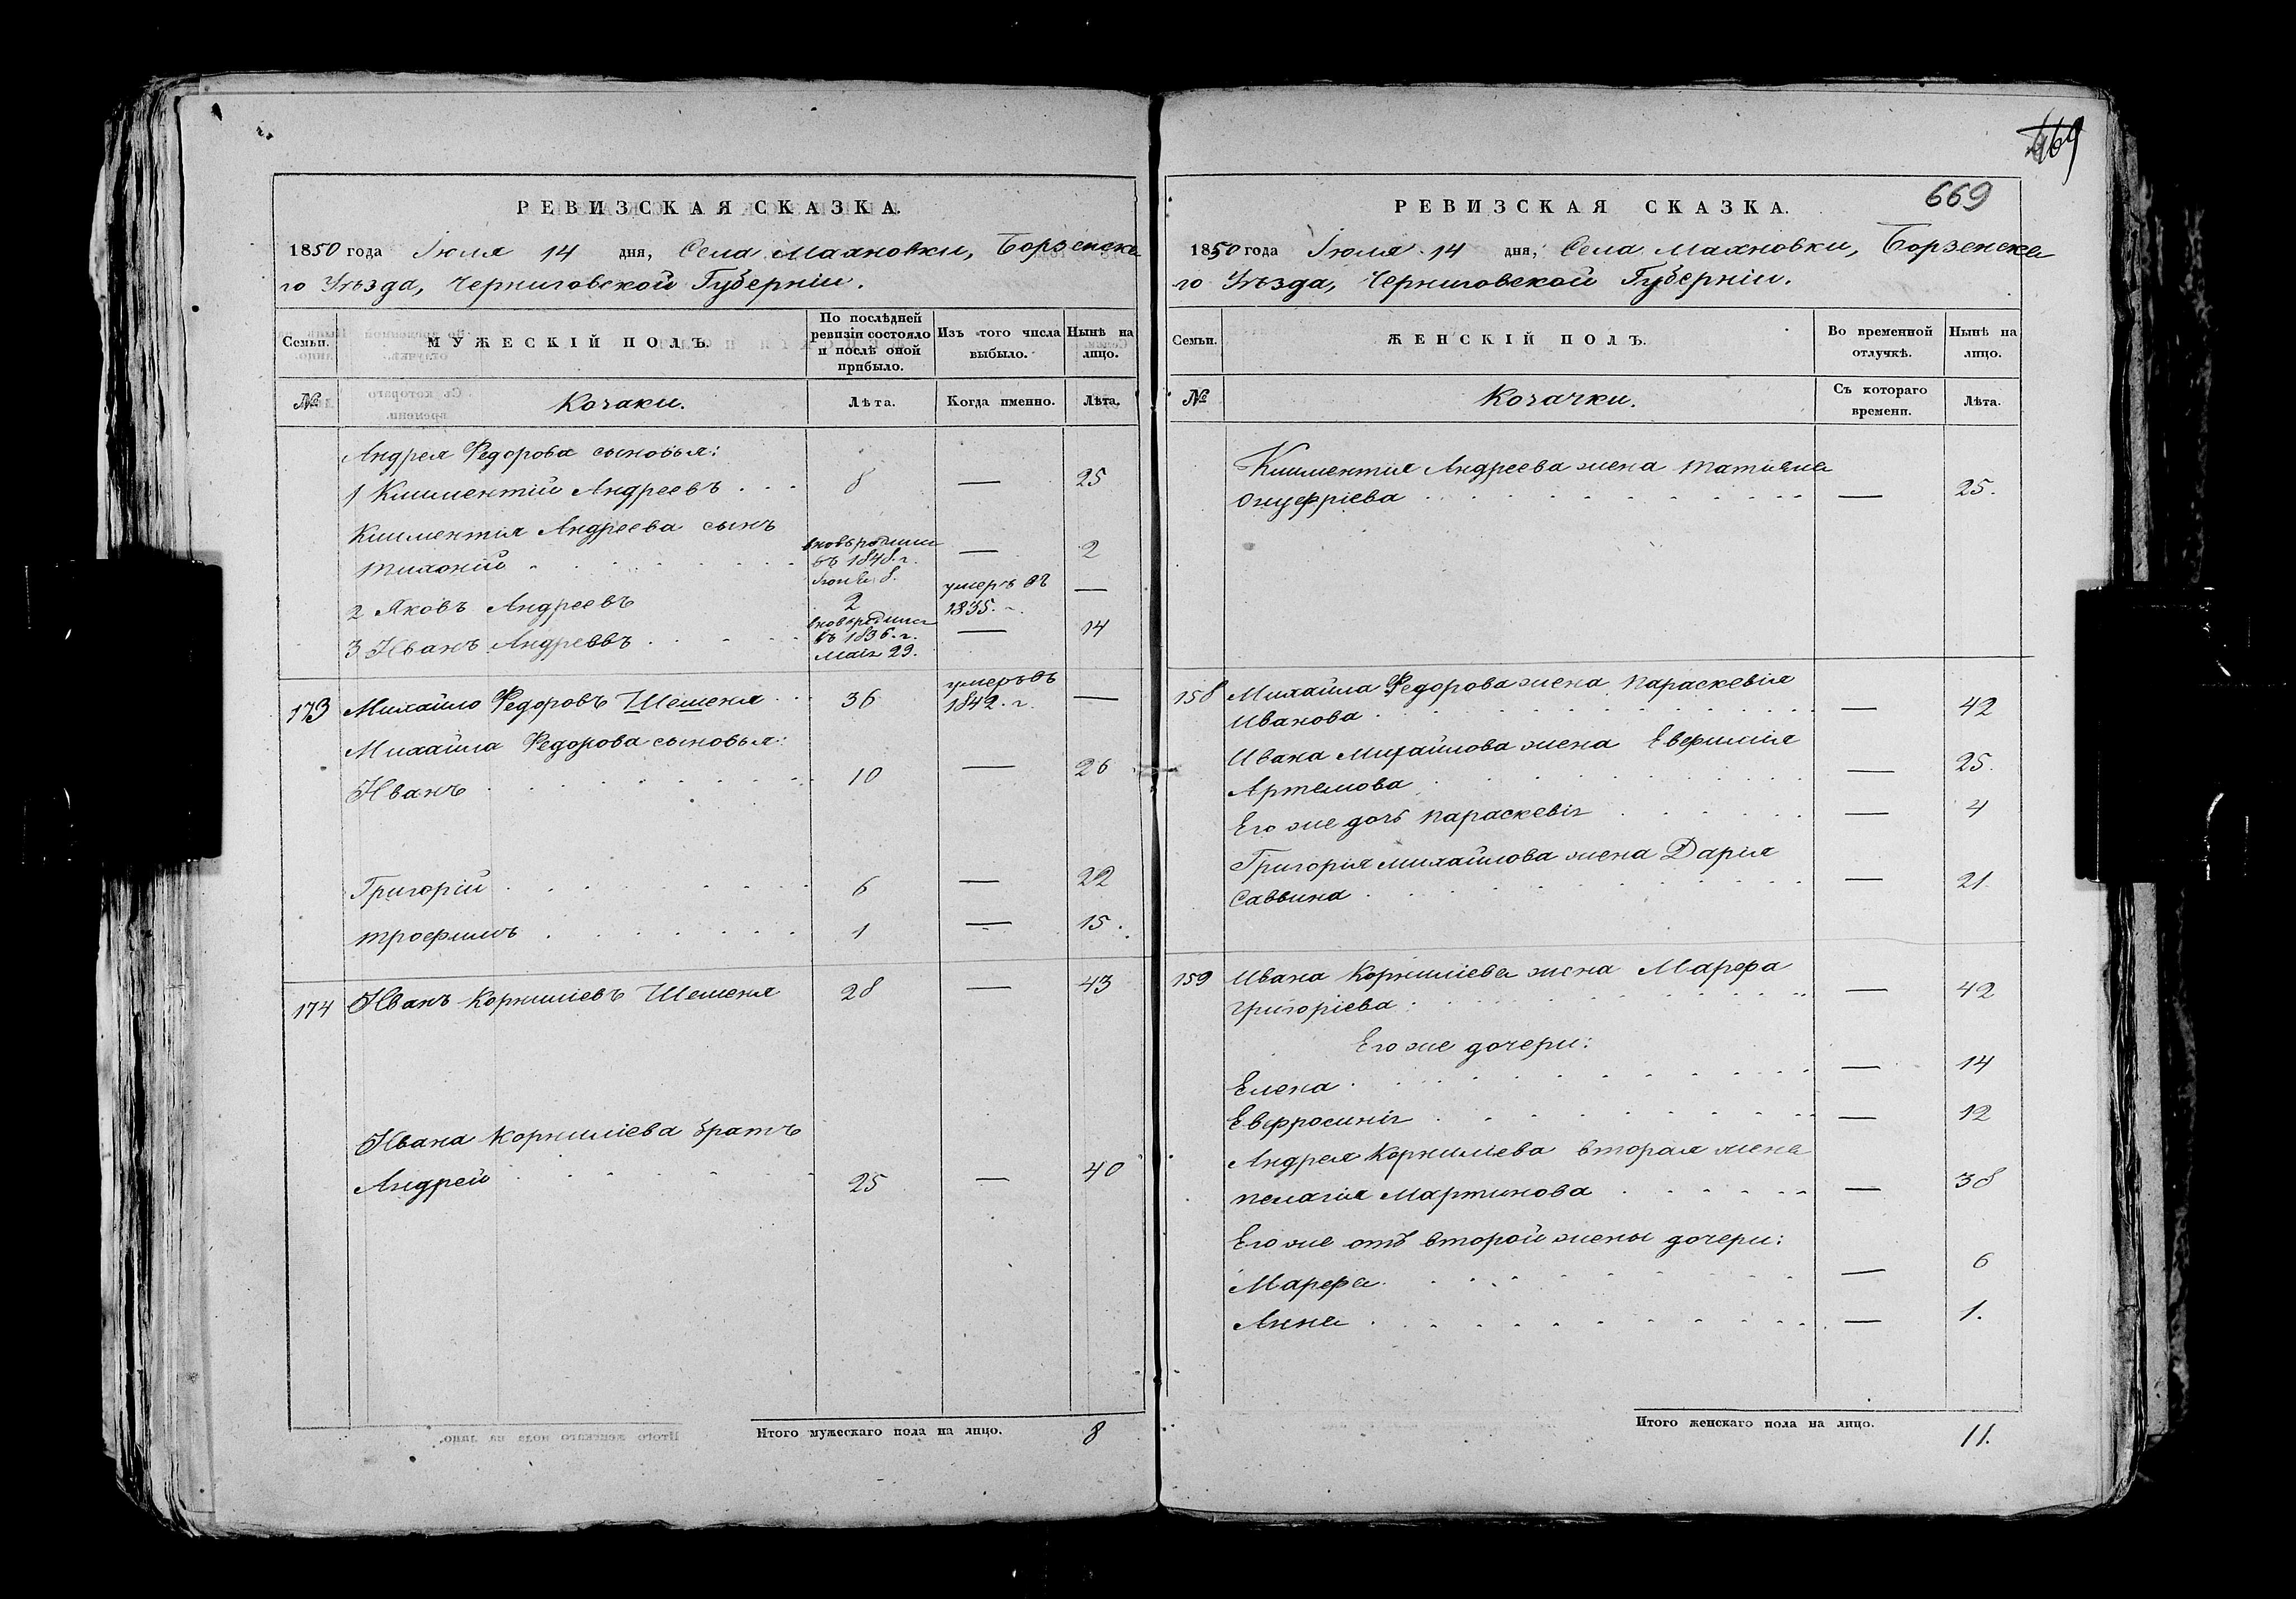 РЕВИЗСКАЯ СКАЗКА.
1850 года Іюля 14 дня, Села Махновки, Борзенска
го Уѣзда, Черниговской Губерніи.
Семьи.
МУЖЕСКІЙ ПОЛЪ.
По послѣдней
ревизіи состояло
и послѣ оной
прибыло.
Изъ того числа
выбыло.
Нынѣ на
лицо.
№
Козаки.
Лѣта.
Когда именно.
Лѣта.
Андрея Федорова сыновья:
1 Климентій Андреевъ . . . 8 — 25
Климентія Андреева сынъ
Тихоній . . . . . . . вновьродился въ 1848. г. — 2
2 Яковъ Андреевъ 2 умеръ въ 1835. г. —
3 Иванъ Андреевъ . . . . . вновьродился въ 1836. г. Маія 29. — 14
173 Михайло Федоровъ Шешеня . . 36 умеръ въ 1842. г. —
Михайла Федорова сыновья:
Иванъ . . . . . . . . 10 — 26
Григорій . . . . . . . . 6 — 22
Трофимъ . . . . . . . 1 — 15.
174 Иванъ Корниліевъ Шешеня 28 — 43
Ивана Корниліева братъ
Андрей . . . . . . . 25 — 40
Итого мужескаго пола на лицо. 8
669
РЕВИЗСКАЯ СКАЗКА.
1850 года Іюля 14 дня, Села Махновки, Борзенска
го Уѣзда, Черниговской Губерніи.
Семьи.
ЖЕНСКІЙ ПОЛЪ.
Во временной
отлучкѣ.
Нынѣ на
лицо.
№
Козачки.
Съ котораго
времени.
Лѣта.
Климентія Андреева жена Татіяна
Онуфріева . . . . . . . . . . — 25.
158 Михайла Федорова жена Параскевія
Иванова . . . . . . . . . . — 42
Ивана Михайлова жена Евфимія
Артемова . . . . . . . . . — 25.
Его же дочь Параскевія . . . . . — 4
Григорія Михайлова жена Дарія
Саввина . . . . . . . . . . — 21.
159 Ивана Корниліева жена Марфа
Григоріева . . . . . . . . . . — 42
Его же дочери:
Елена . . . . . . . . . . . — 14
Евфросинія . . . . . . . . . — 12
Андрея Корниліева вторая жена
Пелагія Мартинова . . . . . . — 38
Его же отъ второй жены дочери:
Марфа . . . . . . . . . . — 6
Анна . . . . . . . . . . . — 1.
Итого женскаго пола на лицо. 11.